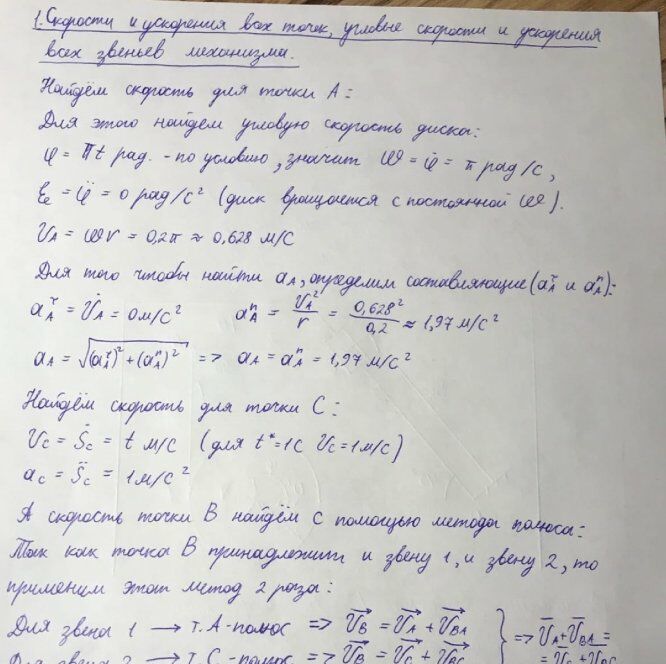 1. Скорости и ускорения всех точек, угловые скорости и ускорения
всех звеньев механизма.
Найдём скорость для точки A:
Для этого найдём угловую скорость диска:
φ = πt рад. - по условию, значит ω = φ̇ = π рад/с,
εₑ = φ̈ = 0 рад/с² (диск вращается с постоянной ω).
V_A = ωr = 0,2π ≈ 0,628 м/с
Для того чтобы найти a_A, определим составляющие (a_A^τ и a_A^n):
a_A^τ = V̇_A = 0 м/с² a_A^n = V_A²/r = 0,628²/0,2 ≈ 1,97 м/с²
a_A = √((a_A^τ)² + (a_A^n)²) => a_A = a_A^n = 1,97 м/с²
Найдём скорость для точки C:
V_C = Ṡ_C = t м/с (для t*=1с V_C = 1 м/с)
a_C = S̈_C = 1 м/с²
А скорость точки B найдём с помощью метода полюса:
Так как точка B принадлежит и звену 1, и звену 2, то
применим этот метод 2 раза:
Для звена 1 → т. A - полюс => V⃗_B = V⃗_A + V⃗_BA } => V̄_A + V̄_BA =
Для звена 2 → т. C - полюс => V⃗_B = V⃗_C + V⃗_BC = V̄_C + V̄_BC